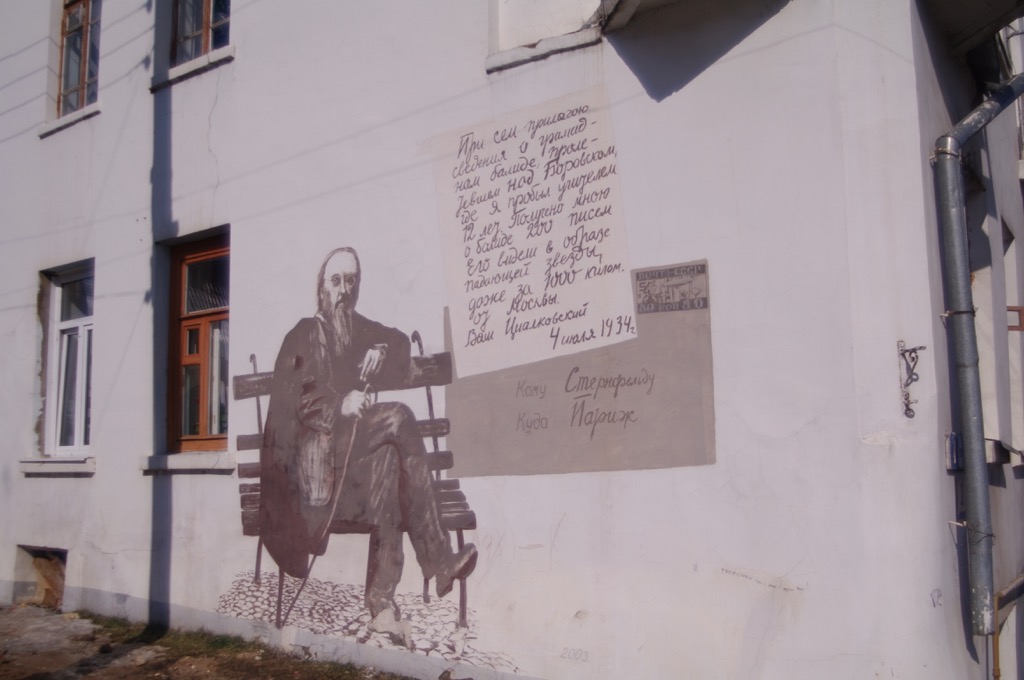 При сем прилагаю
сведения о громад-
ном болиде, проле-
тевшем над Боровском,
где я пробыл учителем
12 лет. Получено мною
о болиде 200 писем
Его видели в образе
падающей звезды,
даже за 1000 килом.
от Москвы.
Ваш Циалковский
4 июля 1934г
ПОЧТА СССР
Кому Стернфельду
Куда Париж
2003